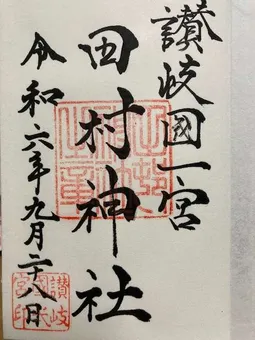 讃岐國一宮
田村神社
令和六年九月二十八日